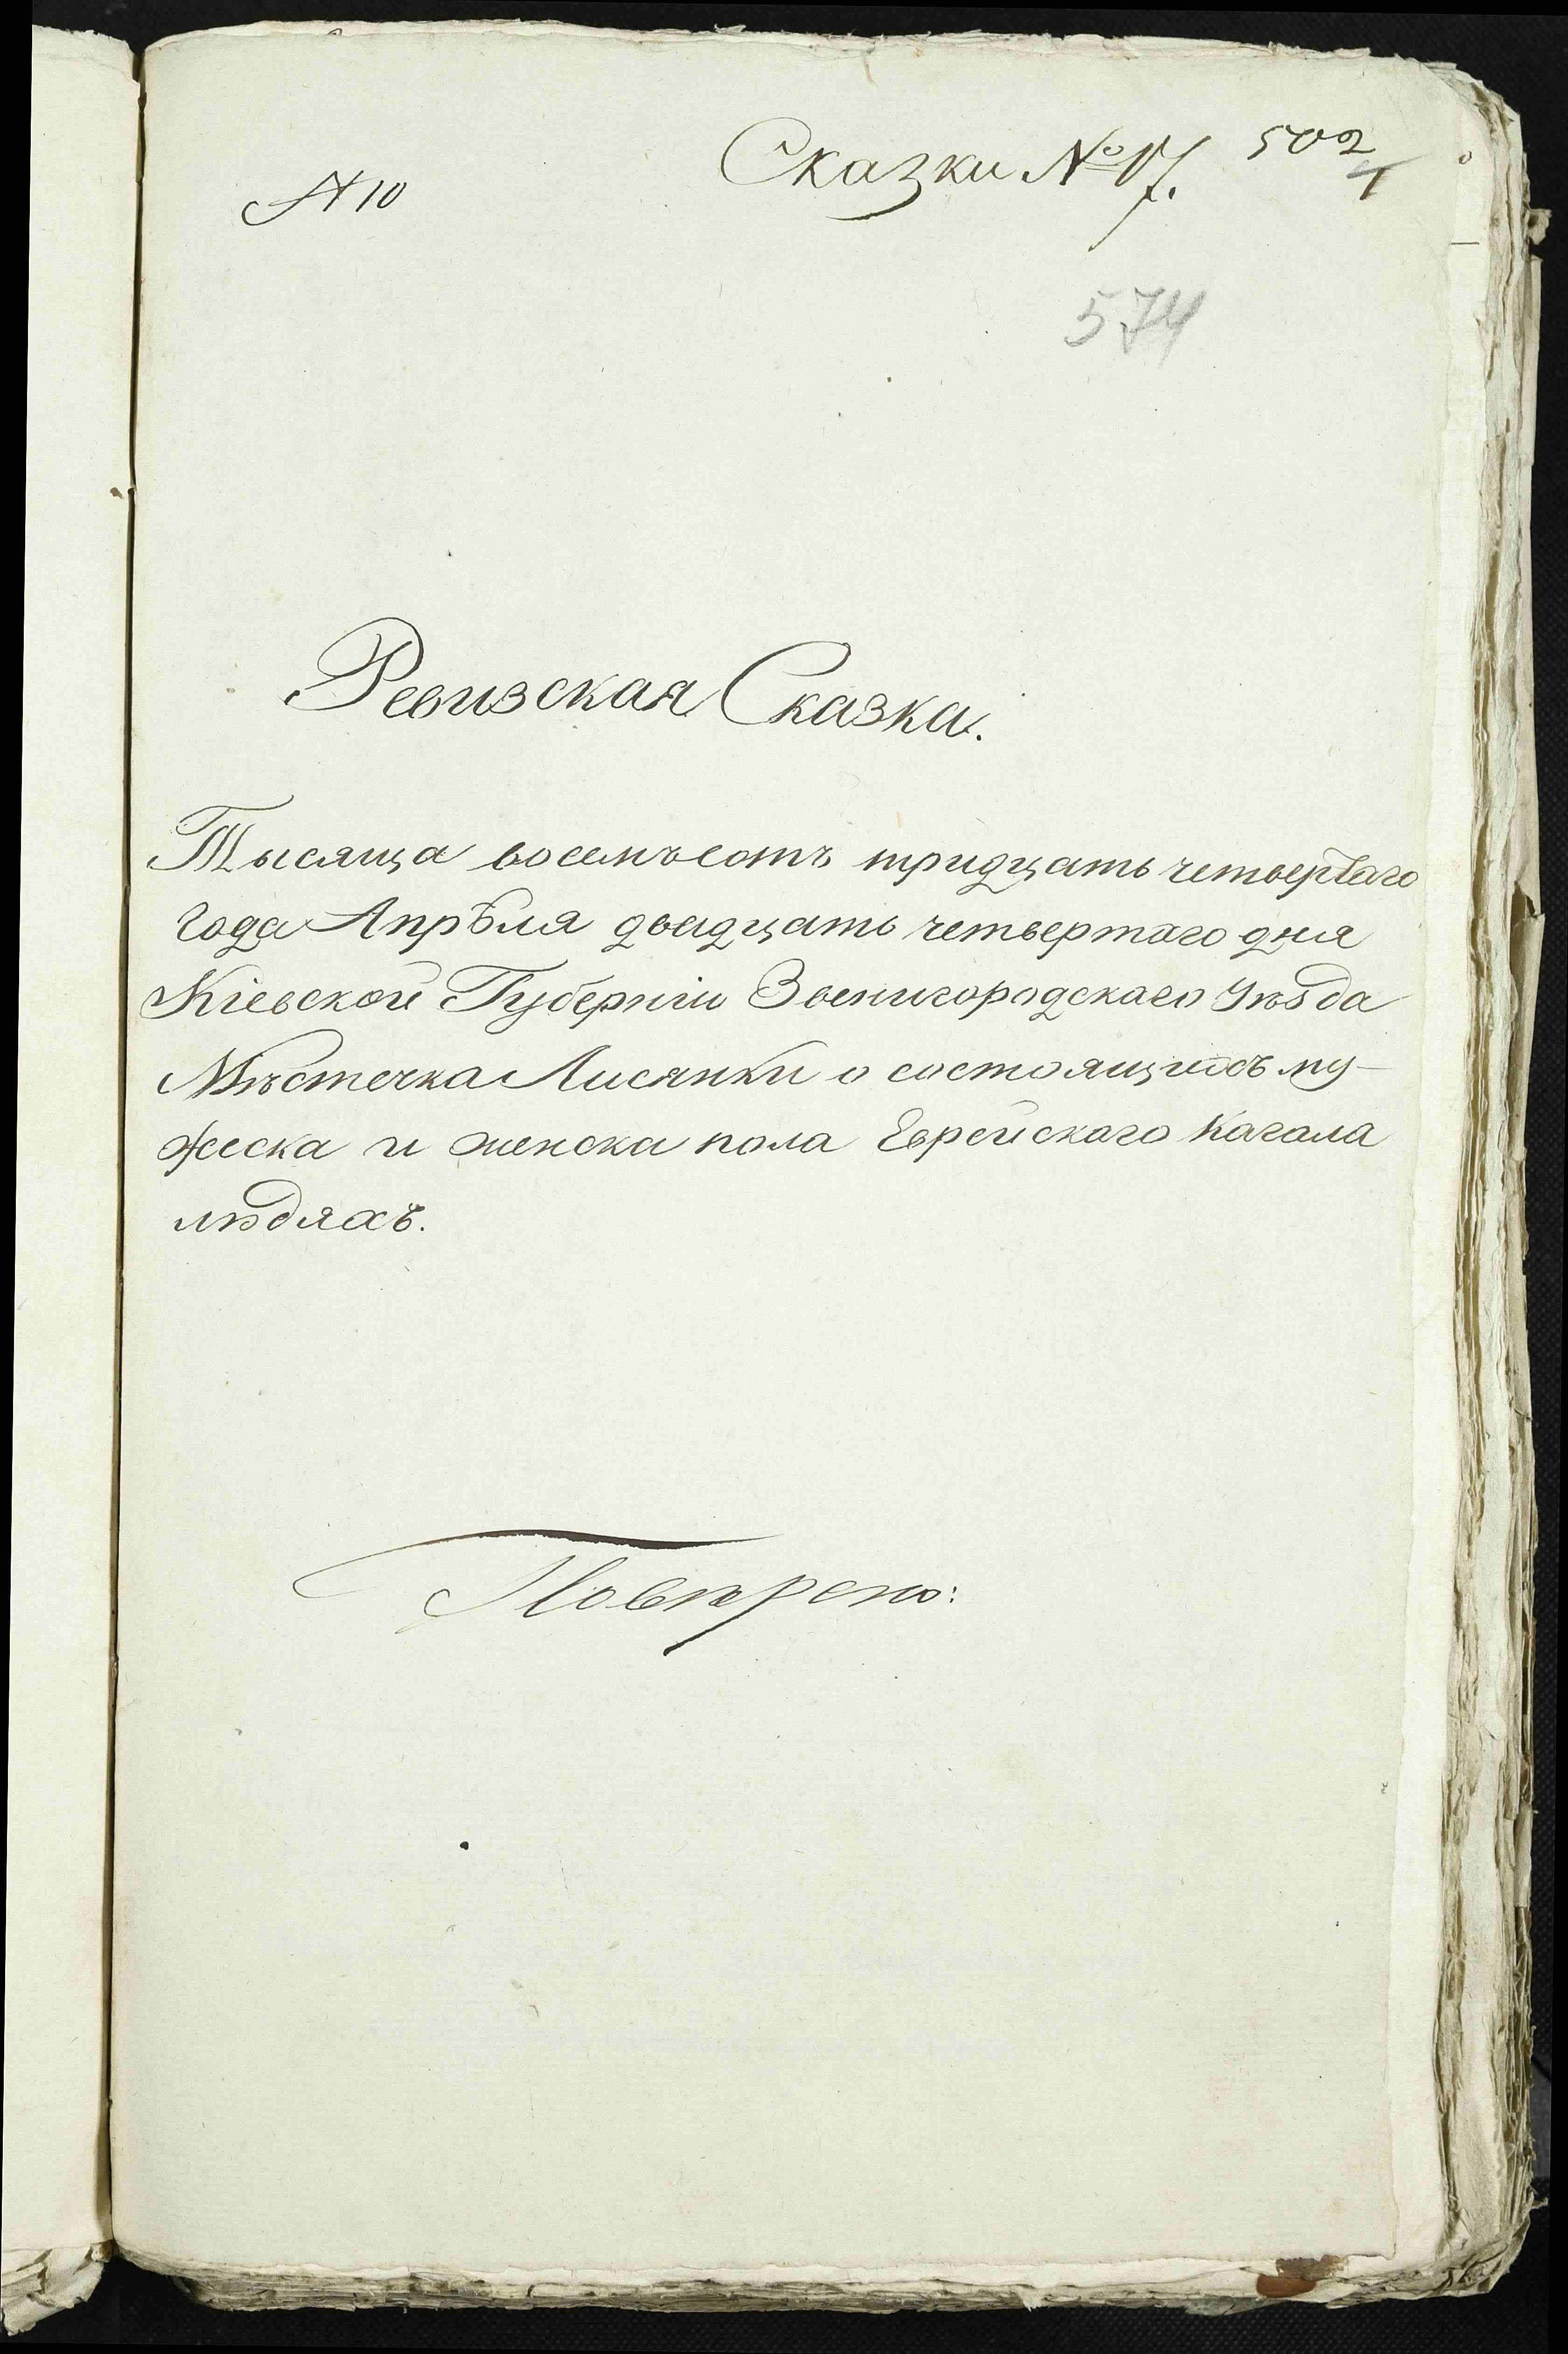 Сказки № 17. 502
№ 10
574
Ревизская Сказка.
Тысяща восемьсотъ тридцать четвертаго
года Апрѣля двадцать четвертаго дня
Кіевской Губерніи Звенигородскаго Уѣзда
Мѣстечка Лисянки о состоящихъ му-
жеска и женска пола Еврейскаго Кагала
людяхъ.
Повѣрено: